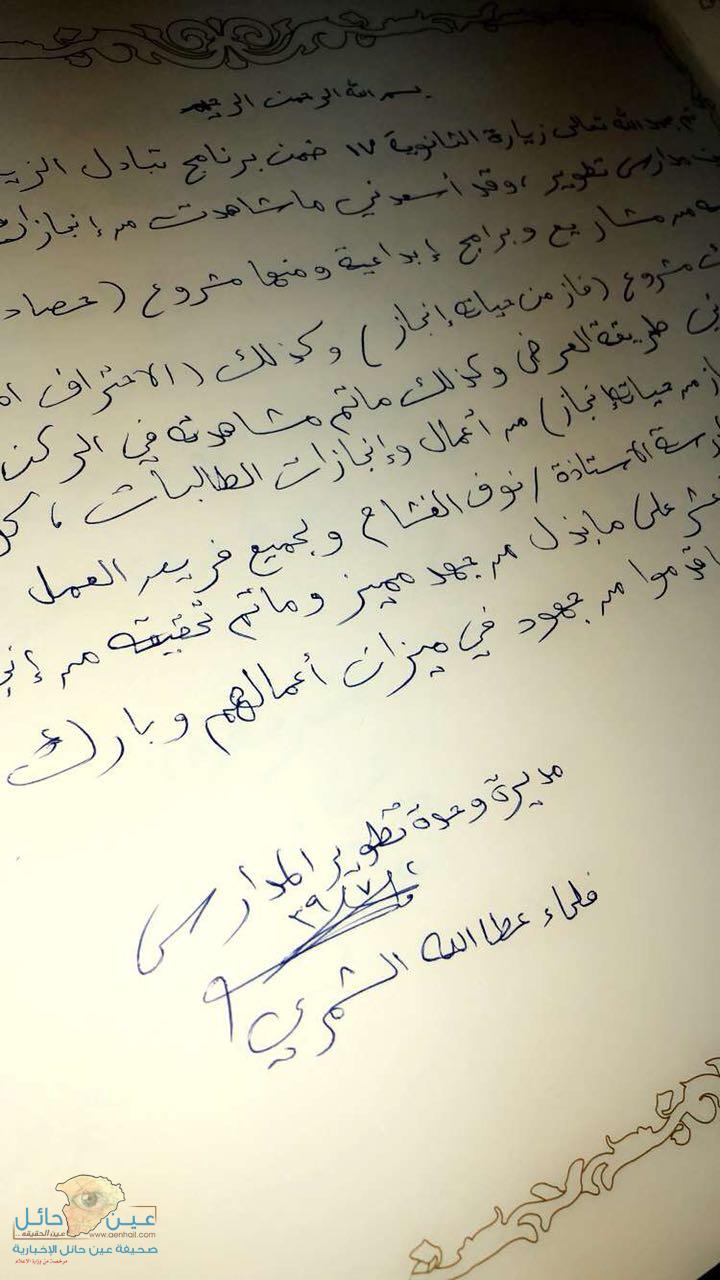 بسم الله الرحمن الرحيم
تم بحمد الله تعالى زيارة الثانوية ١٧ ضمن برنامج تبادل
مدارس تطوير ، وقد أسعدني ما شاهدت من
من مشاريع وبرامج إبداعية ومنها مشروع (
مشروع (فاز من حياته إنجاز) وكذلك (الاحتراف
طريقة العرض وكذلك ما تم مشاهدته في الركن
من حياته إنجاز) من أعمال وإنجازات الطالبات ،
الاستاذة / نوف الغشام وجميع فريق العمل
على ما بذل من جهد مميز وما تم تحقيقه من
من جهود في ميزان أعمالهم وبارك
مديرة وحدة تطوير المدارس
فلماء عطا الله الشمري
عين حائل
عين الحقيقة
www.aenhail.com
صحيفة عين حائل الإخبارية
مرخصة من وزارة الاعلام